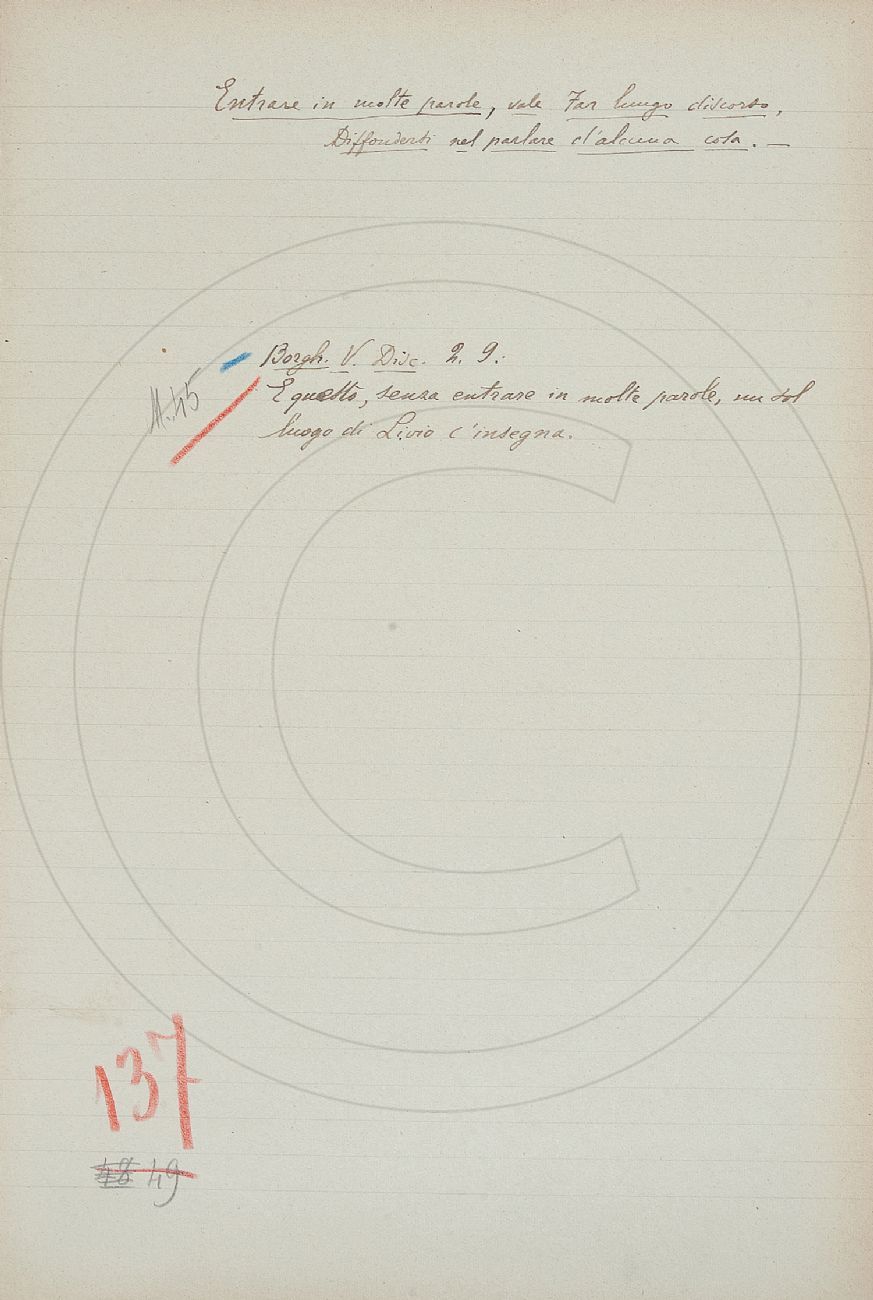 Entrare in molte parole, vale Far lungo discorso,
Diffondersi nel parlare d'alcuna cosa. —
Borgh. V. Disc. 2. 9.:
E questo, senza entrare in molte parole, un sol
luogo di Livio c'insegna.
137
48 49